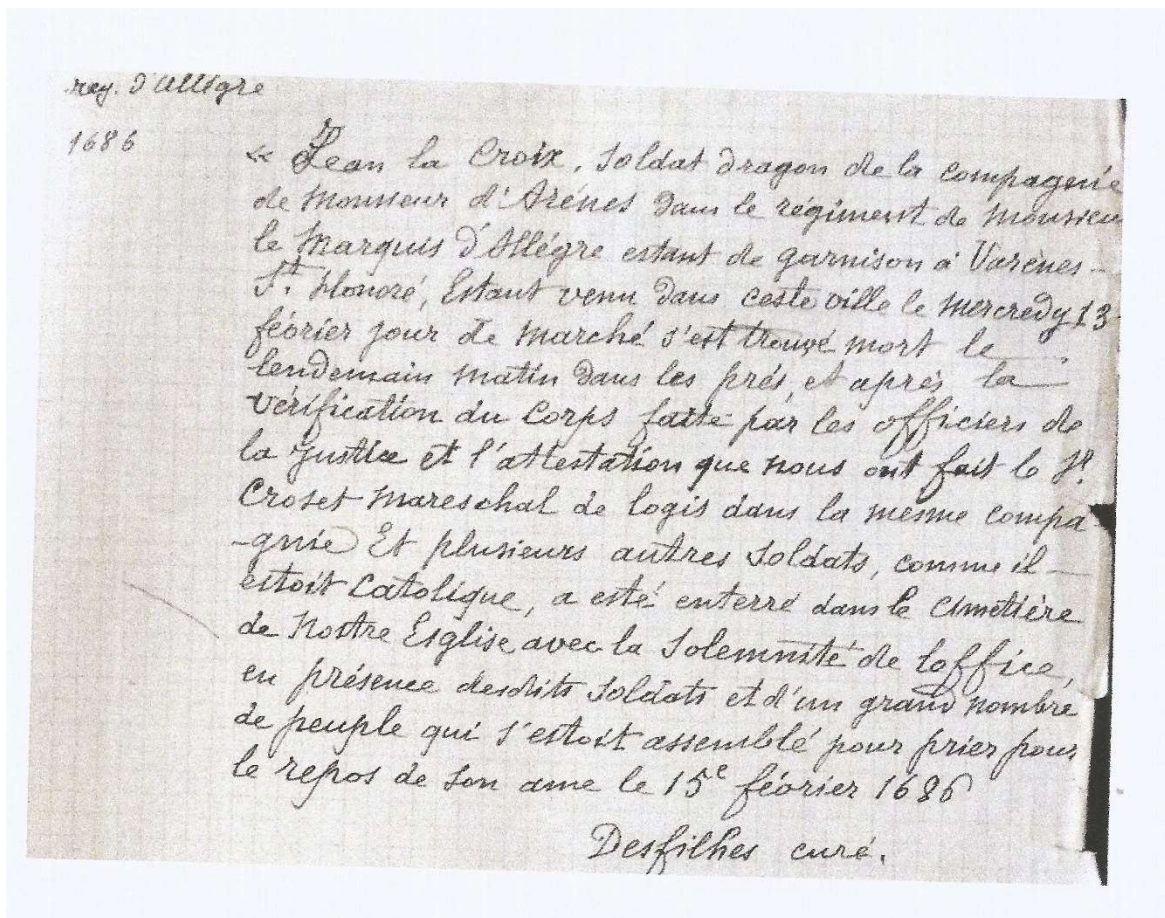 reg. d'Allègre
1686
« Jean la Croix, soldat dragon de la compagenie
de Monsieur d'Arénes dans le régiment de Mousieu
le Marquis d'Allégre estant de garnison à Varènes-
St. Honoré, Estant venu dans ceste ville le Mercredy 13
février jour de marché s'est trouvé mort le
lendemain matin dans les prés, et après la
vérification du Corps faite par les officiers de
la justice et l'attestation que nous ont fait le Sr.
Croset mareschal de logis dans la mesme compa
-gnie Et plusieurs autres soldats, comme il
estoit Catolique, a esté enterré dans le Cimetière
de Nostre Esglise avec la Solemnité de loffice,
en présence desdits soldats et d'un grand nombre
de peuple qui s'estoit assemblé pour prier pour
le repos de son ame le 15e février 1686
Desfilhes curé.